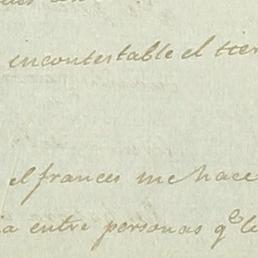 incontestable el tier
el frances me hace
ia entre personas qe le